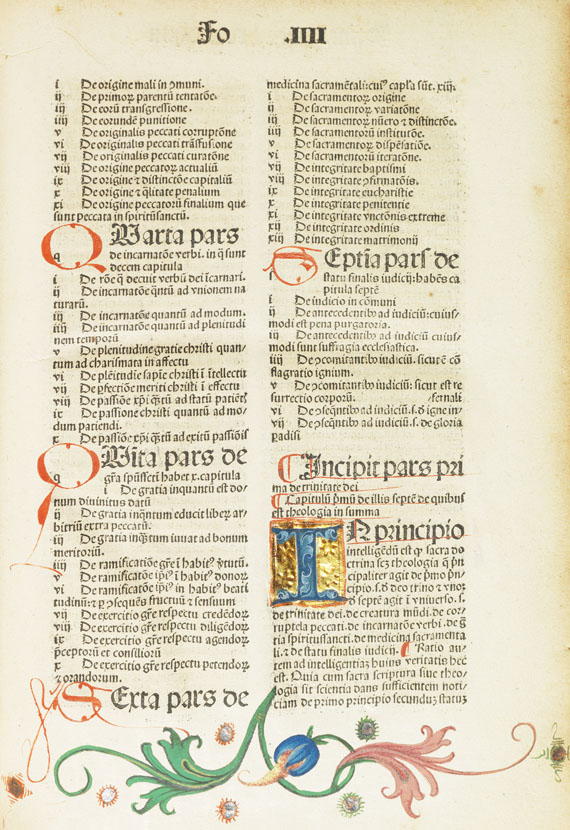 Fo .IIII
i De origine mali in ꝯmuni.
ij De primoꝝ parentū tentatōe.
iij De eorū transgressione.
iiij De eorundē punitione
v De originalis peccati corruptōne
vi De originalis peccati trāsfusione
vij De originalis peccati curatōne
viij De origine peccatoꝝ actualiū
ix De origine ⁊ distinctōe capitaliū
x De origine ⁊ q̄litate penalium
xi De origine peccatoꝝ finalium que
sunt peccata in spiritūsanctū.
QUarta pars
q de incarnatōe verbi. in q̄ sunt
decem capitula
i De rōe q̄ decuit verbū dei īcarnari.
ij De incarnatōe q̄ntū ad vnionem na
turarū.
iij De incarnatōe quantū ad modum.
iiij De incarnatōe quantū ad plenitudi
nem temporū
v De plenitudine gratie christi quan-
tum ad charismata in affectu
vi De plēitudīe sapīe christi ī ītellectu
vij De ꝑfectiōe meriti christi ī effectu
viij De passiōe xp̄i q̄tū ad statū patiētꝭ
ix De passione christi quantū ad mo-
dum patiendi.
x De passiōe xp̄i q̄tū ad exitū passiōis
QUīta pars de
q gr̄a sp̄ussctī habet x. capitula
i De gratia inquantū est do-
num diuinitus datū
ij De gratia inq̄ntum educit liberꝝ ar-
bitriū extra peccatū.
iij De gratia inq̄ntum iuuat ad bonum
meritoriū.
iiij De ramificatiōe gr̄e ī habitꝰ v̄tutū.
v De ramificatōe ip̄iꝰ ī habitꝰ donoꝝ
vi De ramificatōe ip̄iꝰ in habitꝰ beati
tudinū: ⁊ ꝑ ꝯsequēs fructuū ⁊ sensuum
vij De exercitio gr̄e respectu credēdoꝝ
viij De exercitio gr̄e respectu diligēdoꝝ
ix De exercitio gr̄e respectu agendoꝝ
p̄ceptorū et consiliorū
x De exercitio gr̄e respectu petendoꝝ
⁊ orandorum.
SExta pars de
medicina sacramētali: cuiꝰ capl̓a sūt. xiij.
i De sacramentoꝝ origine
ij De sacramentoꝝ variatōne
iij De sacramentoꝝ nūero ⁊ distinctōe.
iiij De sacramentorū institutōe.
v De sacramentoꝝ dispēsatiōe.
vi De sacramentorū iteratōne.
vij De integritate baptismi
viij De integritate ꝯfirmatōis.
ix De integritate eucharistie
x De integritate penitentie
xi De integritate vnctōnis extreme
xij De integritate ordinis
xiij De integritate matrimonij
SEptīa pars de
s statu finalis iudicij: habēs ca
pitula septē
i De iudicio in cōmuni
ij De antecedentibꝰ ad iudiciū: cuius-
modi est pena purgatoria.
iij De antecedentibꝰ ad iudiciū cuius-
modi sunt suffragia ecclesiastica.
iiij De ꝯcomitantibꝰ iudiciū. sicut ē cō
flagratio ignium.
v De ꝯcomitantibꝰ iudiciū: sicut est re
surrectio corporū. /fernali
vi De ꝯseq̄ntibꝰ ad iudiciū. s. d̓ igne in-
vij De ꝯseq̄ntibꝰ ad iudiciū. s. de gloria
ꝑadisi
¶ Incipit pars pri
ma de trinitate dei
¶ Capitulū p̄mū de illis septē de quibus
est theologia in summa
IN principio
intelligēdū est ꝙ sacra do
ctrina scꝫ theologia q̄ p̄n
cipaliter agit de p̄mo p̄n
cipio. s. d̓ deo trino ⁊ vno:
d̓ septē agit ī vniuerso. s.
de trinitate dei. de creatura mūdi. de cor-
ruptela peccati. de incarnatōe verbi. de g̓
tia spiritussancti. de medicina sacramenta
li. ⁊ de statu finalis iudicij. ¶ Ratio au-
tem ad intelligentiā huius veritatis hec
est. Quia cum sacra scriptura siue theo-
logia sit scientia dans sufficientem noti-
ciam de primo principio secundum statuꝫ